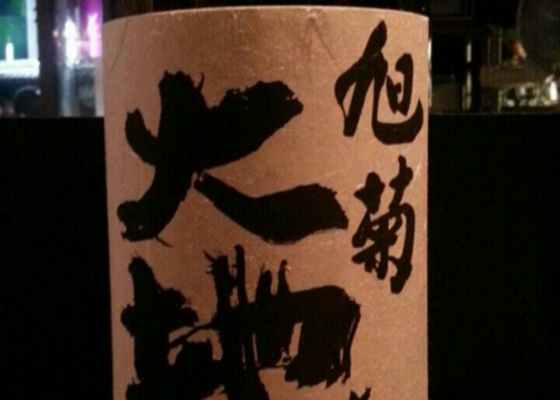 旭菊
大地